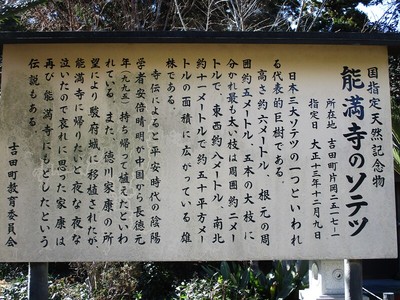 国指定天然記念物
能満寺のソテツ
所在地 吉田町片岡二五一七-一
指定日 大正十三年十二月九日
日本三大ソテツの一つといわれ
る代表的巨樹である。
高さ約六メートル、根元の周
囲約五メートル、五本の大枝に
分かれ最も太い枝は周囲約二メー
トルで、東西約八メートル、南北
約十一メートルで約五十平方メー
トルの面積に広がっている雄
株である。
寺伝によると平安時代の陰陽
学者安倍晴明が中国から長徳元
年(九九五)持ち帰って植えたといわ
れている。また、徳川家康の所
望により駿府城に移植されたが、
能満寺に帰りたいと夜な夜な
泣いたので哀れに思った家康は
再び能満寺にもどしたという
伝説もある。
吉田町教育委員会